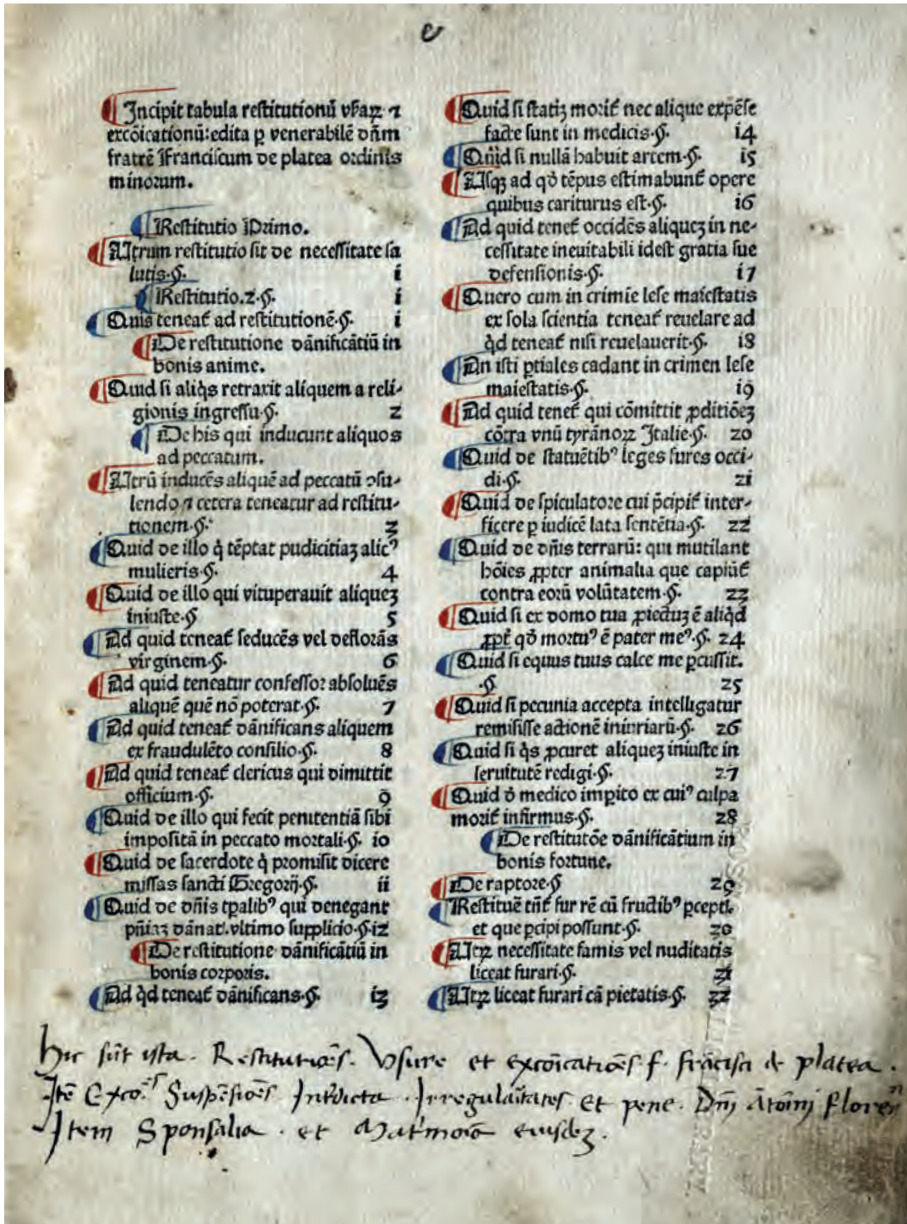 Incipit tabula restitutionũ vsuraꝝ ⁊
excõicationũ: edita ꝑ venerabilẽ dñm
fratrẽ Franciscum de platea ordinis
minorum.
¶ Restitutio Primo.
¶ Utrum restitutio sit de necessitate sa
lutis.§. i
¶ Restitutio.2.§. i
¶ Quis teneat̃ ad restitutionẽ.§. i
¶ De restitutione dãnificãtiũ in
bonis anime.
¶ Quid si aliq̃s retraxit aliquem a reli-
gionis ingressu.§. 2
¶ De his qui inducunt aliquos
ad peccatum.
¶ Utrũ inducẽs aliquẽ ad peccatũ ↄsu-
lendo ⁊ cetera teneatur ad restitu-
tionem.§. 3
¶ Quid de illo q̃ tẽptat pudicitiaʒ alicꝰ
mulieris.§. 4
¶ Quid de illo qui vituperauit aliqueʒ
iniuste.§ 5
¶ Ad quid teneat̃ seducẽs vel deflorãs
virginem.§. 6
¶ Ad quid teneatur confessor absoluẽs
aliquẽ quẽ nõ poterat.§. 7
¶ Ad quid teneat̃ dãnificans aliquem
ex fraudulẽto consilio.§. 8
¶ Ad quid teneat̃ clericus qui dimittit
officium.§. 9
¶ Quid de illo qui fecit penitentiã sibi
impositã in peccato mortali.§. io
¶ Quid de sacerdote q̃ promisit dicere
missas sancti Gregorij.§. ii
¶ Quid de dñis tꝑalibꝰ qui denegant
pñiaʒ dãnat̃. vltimo supplicio.§. i2
¶ De restitutione dãnificãtiũ in
bonis corporis.
¶ Ad q̃d teneat̃ dãnificans.§. i3
¶ Quid si statiʒ morit̃ nec alique expẽse
facte sunt in medicis.§. i4
¶ Quid si nullã habuit artem.§. i5
¶ Usqʒ ad qõ tẽpus estimabunt̃ opere
quibus cariturus est.§. i6
¶ Ad quid tenet̃ occidẽs aliqueʒ in ne-
cessitate ineuitabili idest gratia sue
defensionis.§. i7
¶ Quero cum in crimĩe lese maiestatis
ex sola scientia teneat̃ reuelare ad
q̃d teneat̃ nisi reuelauerit.§. i8
¶ An isti ꝑtiales cadant in crimen lese
maiestatis.§. i9
¶ Ad quid tenet̃ qui cõmittit ꝓditiõeʒ
cõtra vnũ tyrãnoꝝ Italie.§. 20
¶ Quid de statuẽtibꝰ leges fures occi-
di.§. 2i
¶ Quid de spiculatore cui p̃cipit̃ inter-
ficere ꝑ iudicẽ lata sentẽtia.§. 22
¶ Quid de dñis terrarũ: qui mutilant
hõies ꝓpter animalia que capiũt̃
contra eorũ volũtatem.§. 23
¶ Quid si ex domo tua ꝓiectuʒ ẽ aliq̃d
ꝓpt̃ qõ mortuꝰ ẽ pater meꝰ.§. 24
¶ Quid si equus tuus calce me ꝑcussit.
.§ 25
¶ Quid si pecunia accepta intelligatur
remisisse actionẽ iniuriarũ.§. 26
¶ Quid si q̃s ꝓcuret aliqueʒ iniuste in
seruitutẽ redigi.§. 27
¶ Quid õ medico imꝑito ex cuiꝰ culpa
morit̃ infirmus.§. 28
¶ De restitutõe dãnificãtium in
bonis fortune.
¶ De raptore.§ 29
¶ Restituẽ tñt̃ fur rẽ cũ fructibꝰ ꝑcepti.
et que ꝑcipi possunt.§. 30
¶ Utꝝ necessitate famis vel nuditatis
liceat furari.§. 3i
¶ Utꝝ liceat furari cã pietatis.§. 32
Hic sũt ista. Restitutiões. Vsure et excõicatiões f. frãcisci de platea.
Itẽ Exco.ẽs Suspẽsiões Intẽdicta. Irregularitates et pene. Dñi Ãtoĩnj floreñ
Item Sponsalia. et Matrimoia eiusdeʒ.